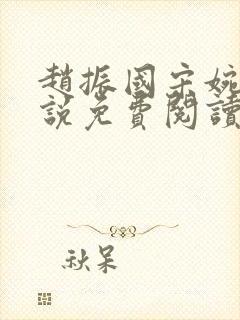 趙振國宋婉
說免費閱讀
秋呆